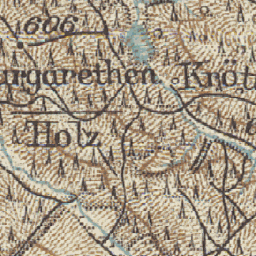 606
argarethen Kröt
Holz